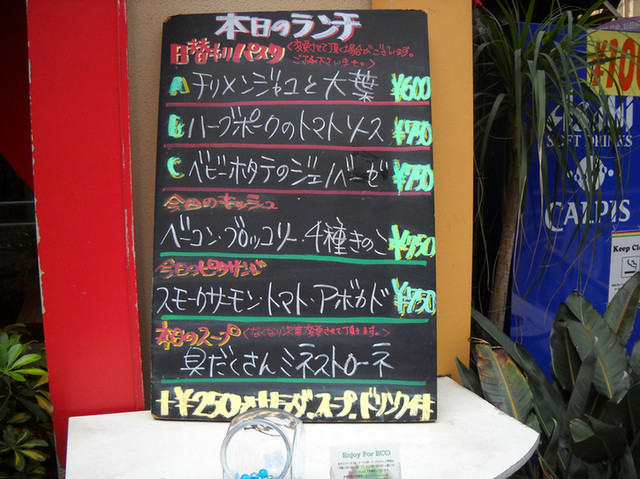 本日のランチ
日替わりパスタ <変更させて頂く場合がございます。
ご了承下さいませ。>
A チリメンジャコと大葉 ¥600
B ハーブポークのトマトソース ¥750
C ベビーホタテのジェノベーゼ ¥750
今日のキッシュ
ベーコン・ブロッコリー・4種きのこ ¥750
今日のピタサンド
スモークサーモン・トマト・アボカド ¥750
本日のスープ <なくなり次第変更させて頂きます。>
具だくさんミネストローネ
+¥250でサラダ、スープ、ドリンク付
¥100
SOFT DRINKS
CALPIS
Keep Cl
Enjoy For ECO